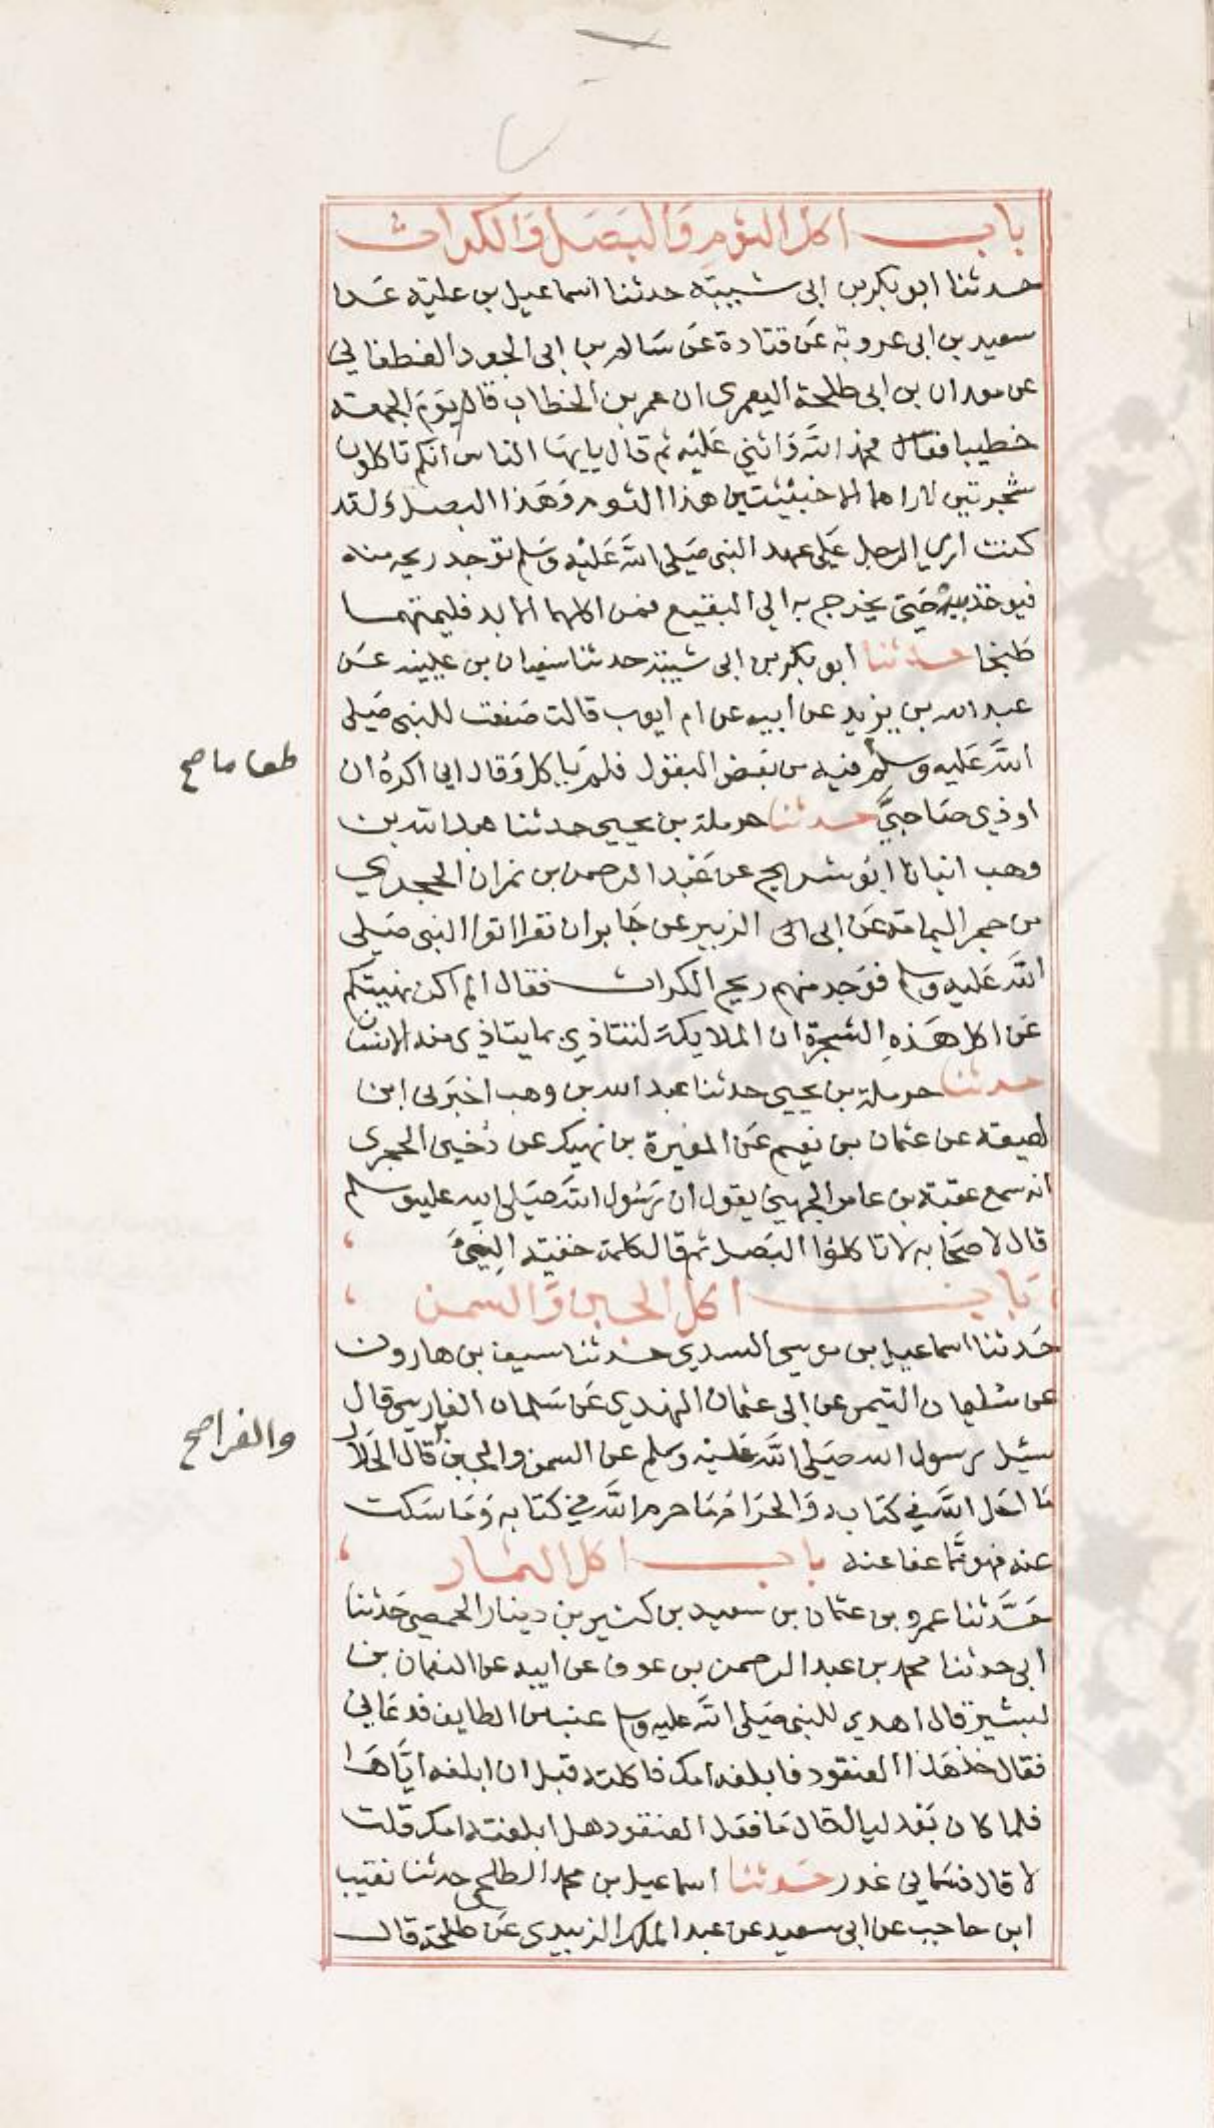 باب اكل الثوم والبصل والكراث
حدثنا ابو بكر بن ابى شيبة حدثنا اسماعيل بن علية عن
سعيد بن ابى عروبة عن قتادة عن سالم بن ابى الجعد الغطفاني
عن معدان بن ابى طلحة اليعمرى ان عمر بن الخطاب قام يوم الجمعة
خطيبا فقال محمد الله واثني عليه ثم قال يايها الناس انكم تاكلون
شجرتين لا اراهما الا خبيثتين هذا الثوم وهذا البصل ولقد
كنت اري الرجل على عهد النبى صلى الله عليه وسلم توجد ريحه منه
فيوخذ بيده حتى يخرج به الي البقيع فمن اكلهما لابد فليمتهما
طبخا حدثنا ابو بكر بن ابى شيبة حدثنا سفيان بن عيينه عن
عبد الله بن يزيد عن ابيه عن ام ايوب قالت صنعت للنبى صلى
الله عليه وسلم فيه من بعض البقول فلم ياكل وقال اني اكره ان
طعاما صح
اوذي صاحبي حدثنا حرملة بن يحيى حدثنا عبد الله بن
وهب انبانا ابو شريح عن عبد الرحمن بن نمران الحجري
من حجر اليمامة عن ابى الزبير عن جابر ان نفرا اتوا النبى صلى
الله عليه وسلم فوجد منهم ريح الكراث فقال الم اكن نهيتكم
عن اكل هذه الشجرة ان الملايكة لتتاذي بما يتاذى منه الانسان
حدثنا حرملة بن يحيى حدثنا عبد الله بن وهب اخبرنى ابن
لهيعة عن عثمان بن نعيم عن المغيرة بن نهيك عن دخين الحجرى
انه سمع عقبة بن عامر الجهني يقول ان رسول الله صلى الله عليه وسلم
قال لاصحابه لا تاكلوا البصل ثم قال كلمة خفية النيئ
باب اكل الجبن والسمن
حدثنا اسماعيل بن موسى السدي حدثنا سيف بن هارون
عن سليمان التيمى عن ابى عثمان النهدي عن سلمان الفارسى قال
سئيل رسول الله صلى الله عليه وسلم عن السمن والجبن قال الحلال
والفرا صح
ما احل الله في كتابه والحرام ما حرم الله في كتابه وما سكت
عنه فهو مما عفا عنه باب اكل الثمار
حدثنا عمرو بن عثمان بن سعيد بن كثير بن دينار الحمصى حدثنا
ابى حدثنا محمد بن عبد الرحمن بن عوف عن ابيه عن النعمان بن
لبشير قال اهدي للنبى صلى الله عليه وسلم عنب من الطايف فدعاني
فقال خذ هذا العنقود فابلغه امك فاكلته قبل ان ابلغه اياها
فلما كان بعد ليال قال ما فعل العنقود هل ابلغته امك قلت
لا قال فسماني غدر حدثنا اسماعيل بن محمد الطلحى حدثنا نقيب
ابن حاجب عن ابى سعيد عن عبد الملك الزبيرى عن طلحة قال